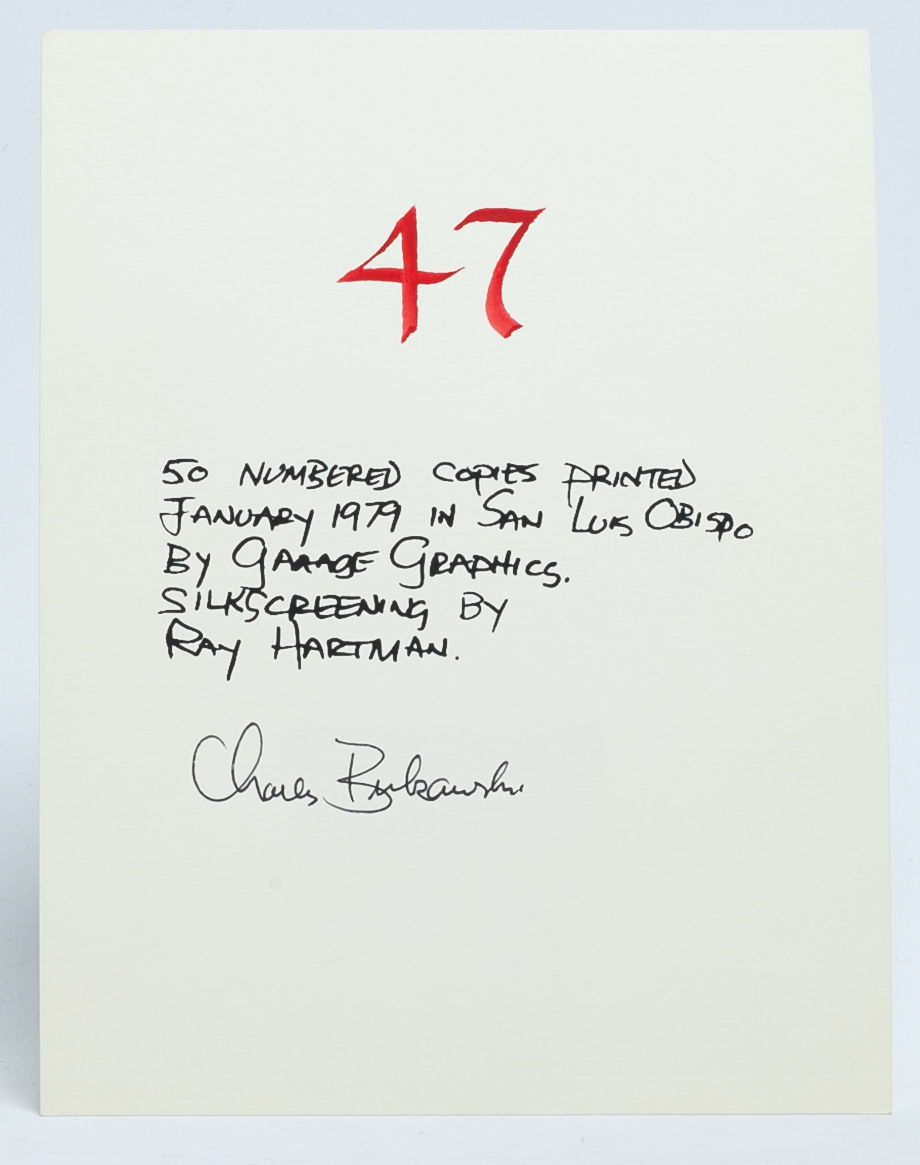 47
50 NUMBERED COPIES PRINTED
JANUARY 1979 IN SAN LUIS OBISPO
BY GARAGE GRAPHICS.
SILKSCREENING BY
RAY HARTMAN.
Charles Bukowski